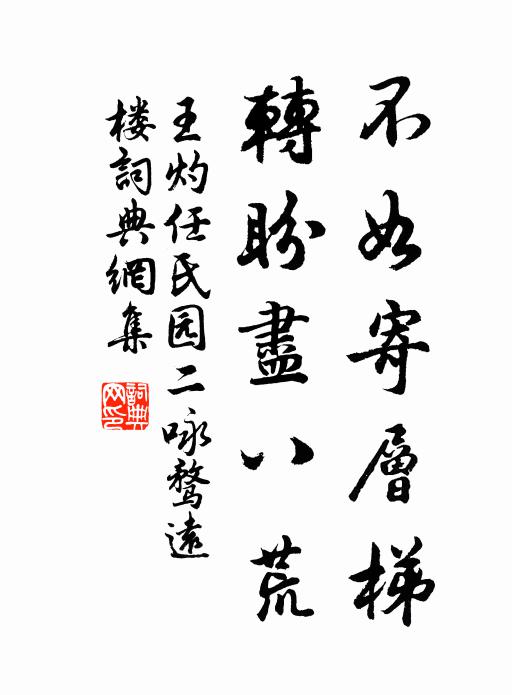 不如寄層梯
轉盼盡八荒
王灼任氏园二咏騖遠
楼詞典網集
詞典网印